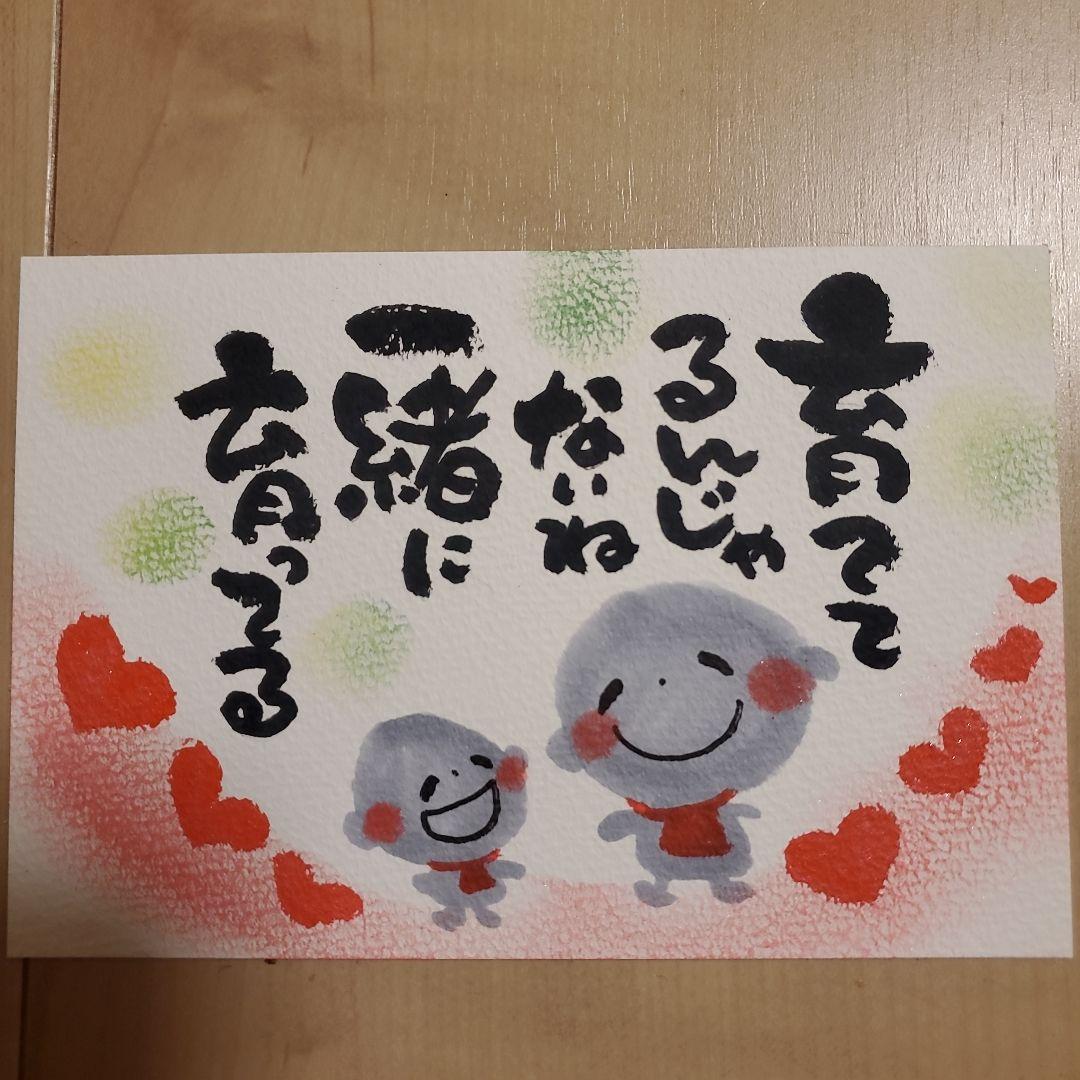 育てて
るんじゃ
ないね
一緒に
育ってる